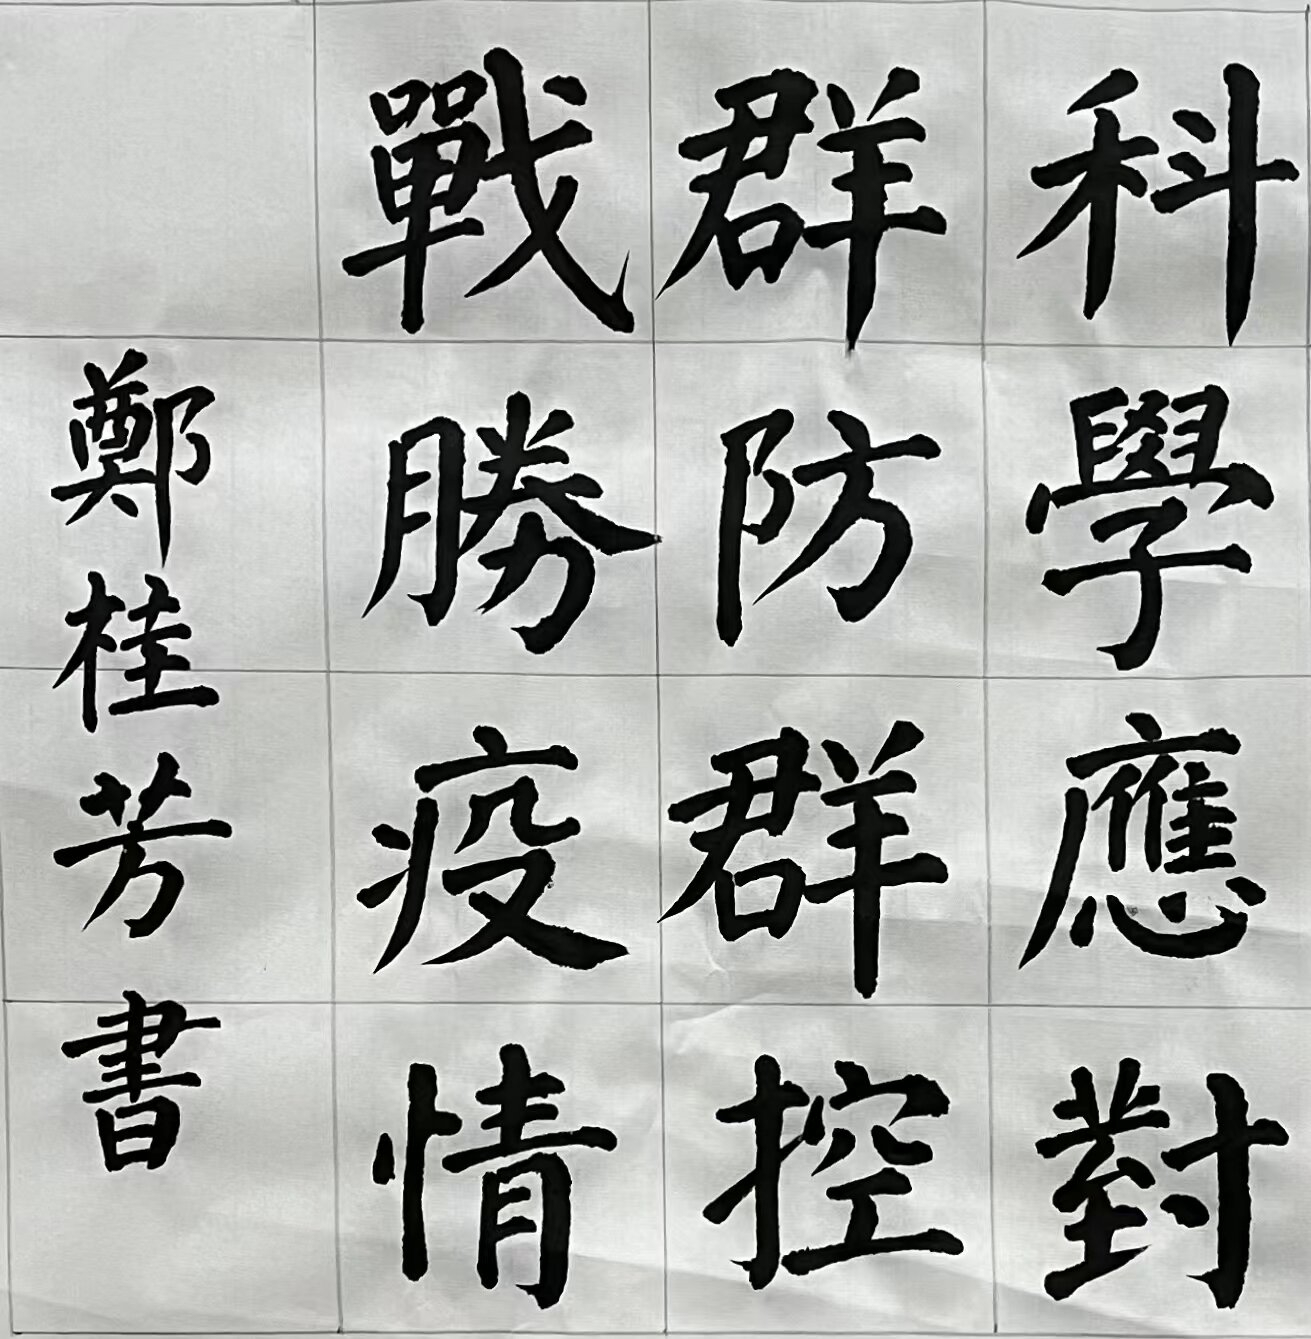 科學應對
群防群控
戰勝疫情
鄭桂芳書